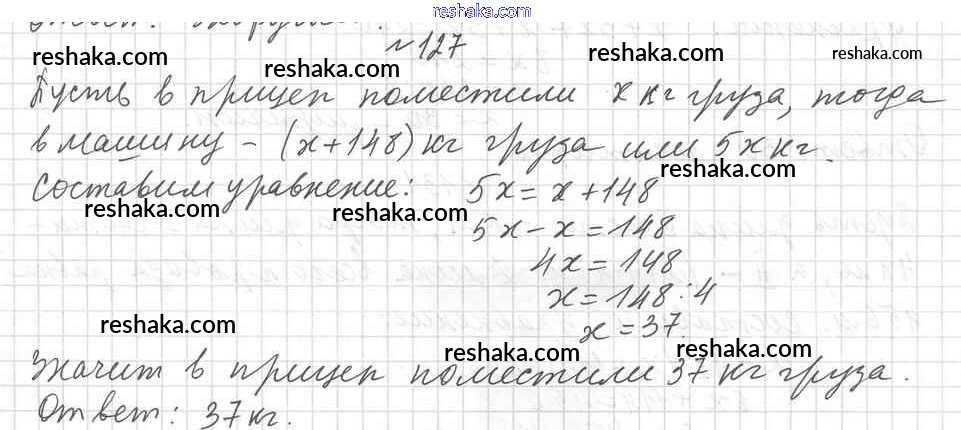 reshaka.com
Ответ:
№127
reshaka.com reshaka.com reshaka.com reshaka.com
Пусть в прицеп поместили x кг груза, тогда
в машину - (x+148) кг груза или 5x кг.
reshaka.com reshaka.com reshaka.com
Составим уравнение: 5x = x + 148
reshaka.com reshaka.com
5x - x = 148
4x = 148
x = 148 : 4
reshaka.com
x = 37.
reshaka.com reshaka.com
Значит в прицеп поместили 37 кг груза.
Ответ: 37 кг.